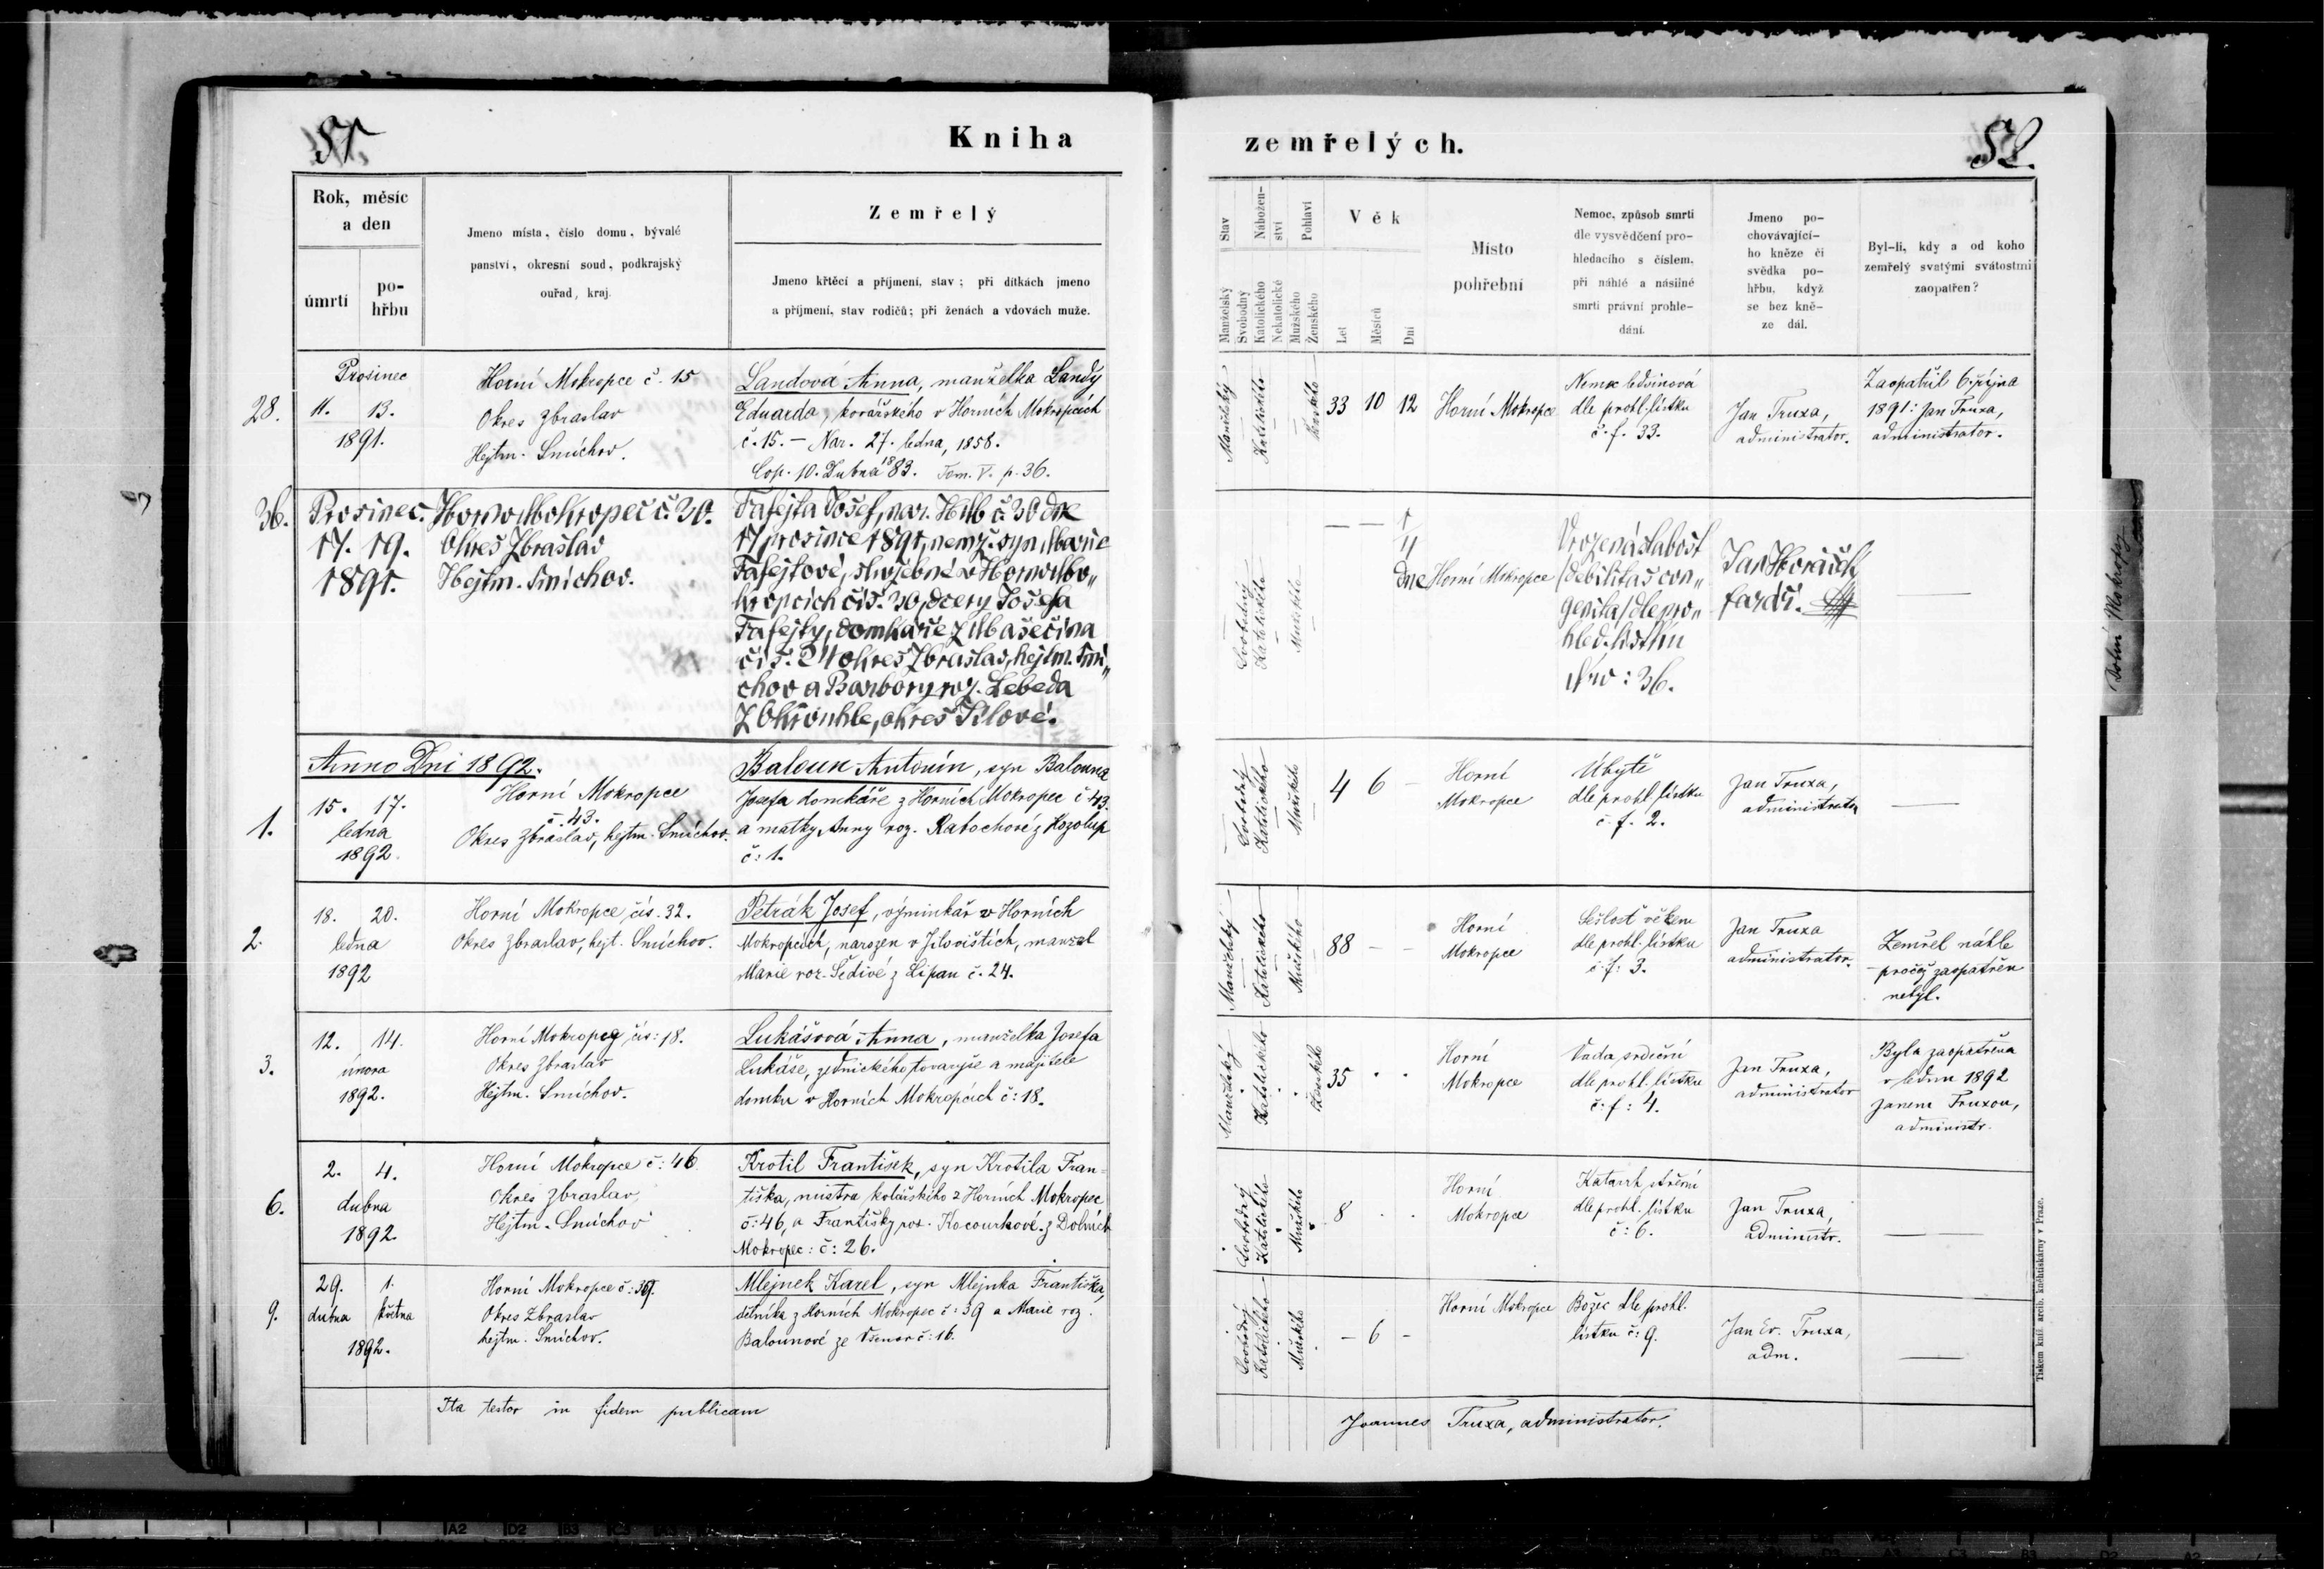 51.
Kniha
Rok, měsíc
a den
úmrtí
po-
hřbu
Jmeno místa, číslo domu, bývalé
panství, okresní soud, podkrajský
ouřad, kraj.
Zemřelý
Jmeno křtěcí a příjmení, stav; při dítkách jmeno
a příjmení, stav rodičů; při ženách a vdovách muže.
28.
Prosinec
11. 13.
1891.
Horní Mokropce č. 15
Okres Zbraslav
Hejtm. Smíchov.
Landová Anna, manželka Landy
Eduarda, kovářského v Horních Mokropcích
č. 15. – Nar. 27. ledna, 1858.
Cop. 10. Dubna 1883. Tom. V. p. 36.
36.
Prosinec.
17. 19.
1891.
Horno Mokropeč č. 30.
Okres Zbraslav
Hejtm. Smíchov.
Fafejta Josef, nar. HMb č. 30 dne
17 prosince 1891, nemž. syn Marie
Fafejtové, služebné v Horno Mo„
kropcích čís. 30, dcery Josefa
Fafejty, domkáře z Mašečína
čís. 24 okres Zbraslav, hejtm. Smí„
chov a Barbory roz. Lebeda
z Okrouhle, okres Jílové.
Anno Dni 1892.
1.
15. 17.
ledna
1892.
Horní Mokropce
č. 43.
Okres Zbraslav, hejtm. Smíchov.
Baloun Antonín, syn Balouna
Josefa domkáře z Horních Mokropec č 43.
a matky Anny roz. Kabochové z Kozolup
č: 1.
2.
18. 20.
ledna
1892
Horní Mokropce, čís. 32.
Okres Zbraslav, hejt. Smíchov.
Petrák Josef, výminkář v Horních
Mokropcích, narozen v Jílovištích, manžel
Marie roz. Šedivé z Lipan č. 24.
3.
12. 14.
února
1892.
Horní Mokropcy čís: 18.
Okres Zbraslav
Hejtm. Smíchov.
Lukášová Anna, manželka Josefa
Lukáše, zednického tovaryše a majitele
domku v Horních Mokropcích č: 18.
6.
2. 4.
dubna
1892.
Horní Mokropce č: 46
Okres Zbraslav
Hejtm. Smíchov
Krotil František, syn Krotila Fran-
tiška, mistra kolářského z Horních Mokropec
č: 46, a Františky roz. Kocourkové z Dolních
Mokropec: č: 26.
9.
29. 1.
dubna května
1892.
Horní Mokropce č: 39.
Okres Zbraslav
hejtm. Smíchov.
Mlejnek Karel, syn Mlejnka Františka,
dělníka z Horních Mokropec č: 39 a Marie roz.
Balounové ze Všenor č: 16.
Ita testor in fidem publicam
zemřelých.
52.
Stav
Nábožen-
ství
Pohlaví
Manželský
Svobodný
Katolického
Nekatolické
Mužského
Ženského
Věk
Let
Měsíců
Dní
Místo
pohřební
Nemoc, způsob smrti
dle vysvědčení pro-
hledacího s číslem,
při náhlé a násilné
smrti právní prohle-
dání.
Jmeno po-
chovávající-
ho kněze či
svědka po-
hřbu, když
se bez kně-
ze dál.
Byl-li, kdy a od koho
zemřelý svatými svátostmi
zaopatřen?
Manželský
Katolického
Ženského
33 10 12
Horní Mokropce
Nemoc ledvinová
dle prohl. lístku
č. f. 33.
Jan Truxa,
administrator.
Zaopatřil 6. října
1891: Jan Truxa,
administrator.
Svobodný
Katolického
Mužského
— — 1/4
dne
Horní Mokropce
Vrozená slabosť
/debilitas con„
genita/ dle pro„
hled. lístku
Nro: 36.
Jan Horáček
farář.
—
Svobodný
Katolického
Mužského
4 6 –
Horní
Mokropce
Úbytě
dle prohl. lístku
č. f. 2.
Jan Truxa,
administrator
—
Manželský
Katolického
Mužského
88 – –
Horní
Mokropce
Sešlosť věkem
dle prohl. lístku
č. f: 3.
Jan Truxa
administrator.
Zemřel náhle
pročež zaopatřen
nebyl.
Manželský
Katolického
Ženského
35 . .
Horní
Mokropce
Vada srdeční
dle prohl. lístku
č: f: 4.
Jan Truxa,
administrator
Byla zaopatřena
v lednu 1892
Janem Truxou,
administr.
Svobodný
Katolického
Mužského
8 . .
Horní
Mokropce
Katarrh střevní
dle prohl. lístku
č: 6.
Jan Truxa,
administr.
—
Svobodný
Katolického
Mužského
– 6 –
Horní Mokropce
Božec dle prohl.
lístku č: 9.
Jan Ev. Truxa,
adm.
—
Joannes Truxa, administrator.
Tiskem kníž. arcib. knihtiskárny v Praze.
Dolní Mokropsy